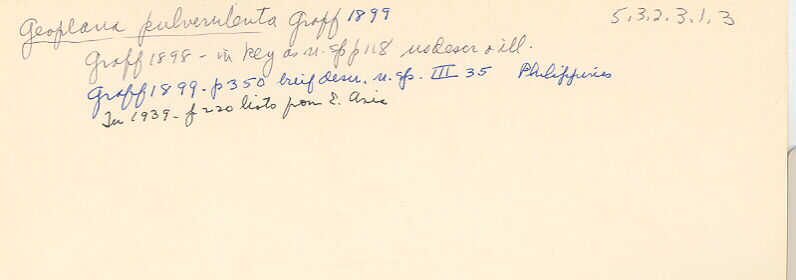 Geoplana pulverulenta Graff 1899 5,3.2.3.1.3
Graff 1898 - in key as n. sp p 118 no descr or ill.
Graff 1899 - p 350 breif descr. n. sp. III 35 Philippines
In 1939 - p 220 lists from E. Asia